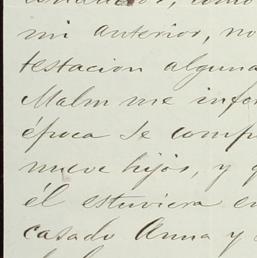 mi anterior, no
testacion alguna
Malm me infor
época se comp
nueve hijos, y q
él estuviera en
casado Anna y